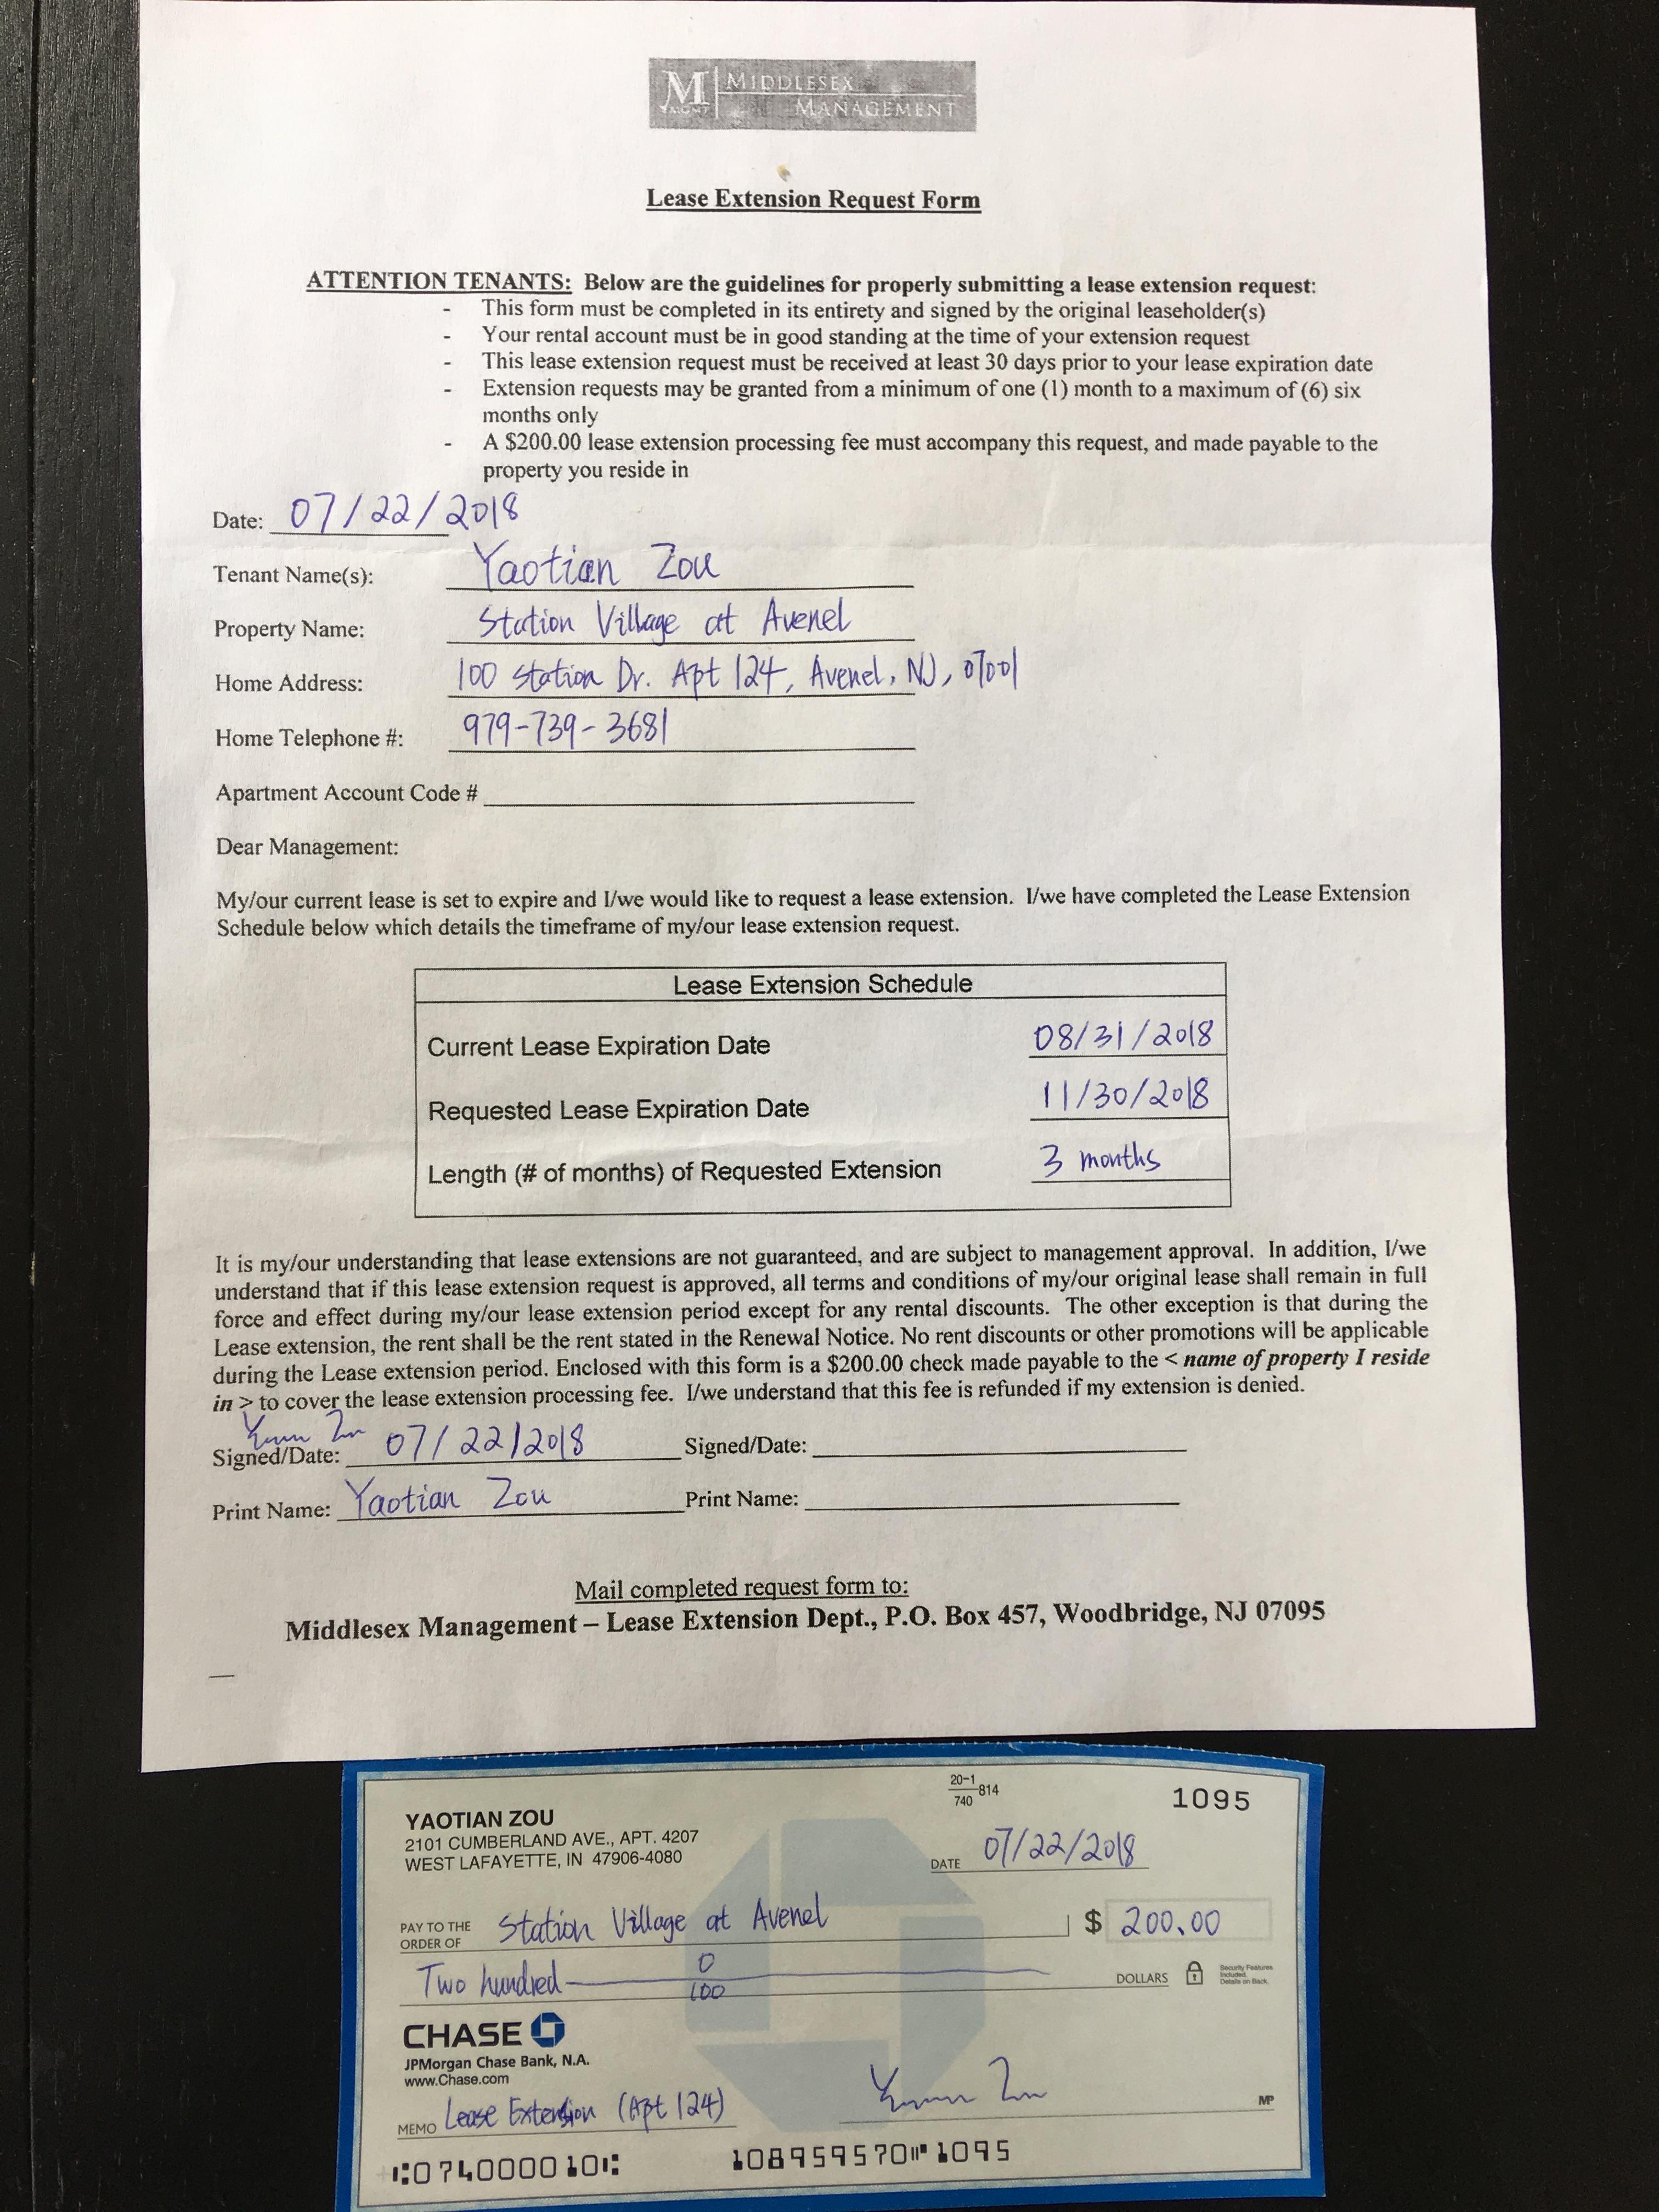 M MIDDLESEX
MANAGEMENT
Lease Extension Request Form
ATTENTION TENANTS: Below are the guidelines for properly submitting a lease extension request:
- This form must be completed in its entirety and signed by the original leaseholder(s)
- Your rental account must be in good standing at the time of your extension request
- This lease extension request must be received at least 30 days prior to your lease expiration date
- Extension requests may be granted from a minimum of one (1) month to a maximum of (6) six
months only
- A $200.00 lease extension processing fee must accompany this request, and made payable to the
property you reside in
Date: 07/22/2018
Tenant Name(s): Yaotian Zou
Property Name: Station Village at Avenel
Home Address: 100 Station Dr. Apt 124, Avenel, NJ, 07001
Home Telephone #: 979-739-3681
Apartment Account Code #
Dear Management:
My/our current lease is set to expire and I/we would like to request a lease extension. I/we have completed the Lease Extension
Schedule below which details the timeframe of my/our lease extension request.
Lease Extension Schedule
Current Lease Expiration Date 08/31/2018
Requested Lease Expiration Date 11/30/2018
Length (# of months) of Requested Extension 3 months
It is my/our understanding that lease extensions are not guaranteed, and are subject to management approval. In addition, I/we
understand that if this lease extension request is approved, all terms and conditions of my/our original lease shall remain in full
force and effect during my/our lease extension period except for any rental discounts. The other exception is that during the
Lease extension, the rent shall be the rent stated in the Renewal Notice. No rent discounts or other promotions will be applicable
during the Lease extension period. Enclosed with this form is a $200.00 check made payable to the < name of property I reside
in > to cover the lease extension processing fee. I/we understand that this fee is refunded if my extension is denied.
Signed/Date: 07/22/2018 Signed/Date:
Print Name: Yaotian Zou Print Name:
Mail completed request form to:
Middlesex Management – Lease Extension Dept., P.O. Box 457, Woodbridge, NJ 07095
1095
YAOTIAN ZOU
2101 CUMBERLAND AVE., APT. 4207
WEST LAFAYETTE, IN 47906-4080
20-1/740 814
DATE 07/22/2018
PAY TO THE
ORDER OF Station Village at Avenel $ 200.00
Two hundred 0/100 DOLLARS
Security Features
Included.
Details on Back.
CHASE
JPMorgan Chase Bank, N.A.
www.Chase.com
MEMO Lease Extension (Apt 124) MP
⑆074000010⑆ 108959570⑈1095